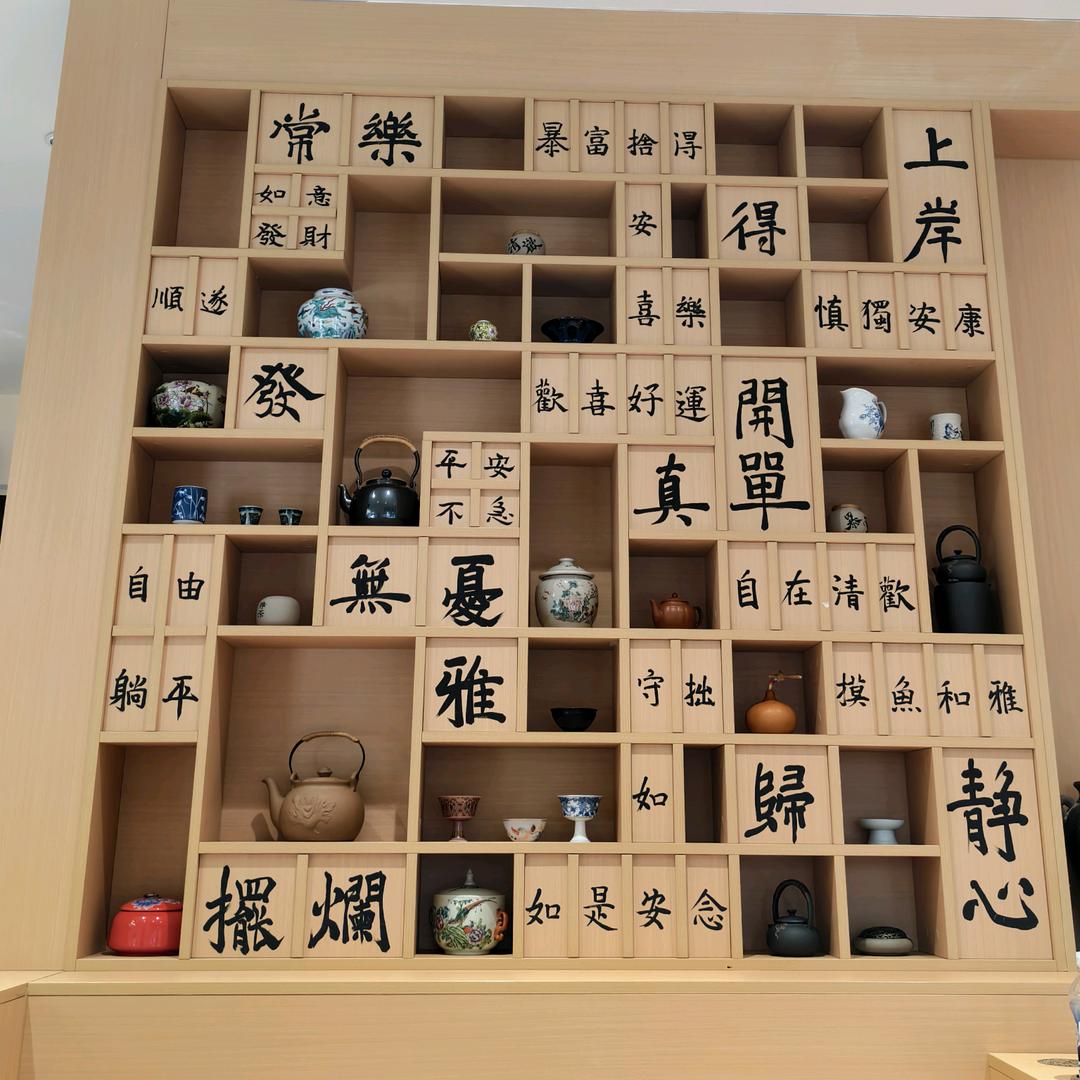 常樂
暴富捨得
上岸
如意
發財
安
得
順遂
喜樂
慎獨安康
發
歡喜好運
開單
平安
不急
真
自由
無憂
自在清歡
躺平
雅
守拙
摸魚和雅
如
歸
静心
擺爛
如是安念